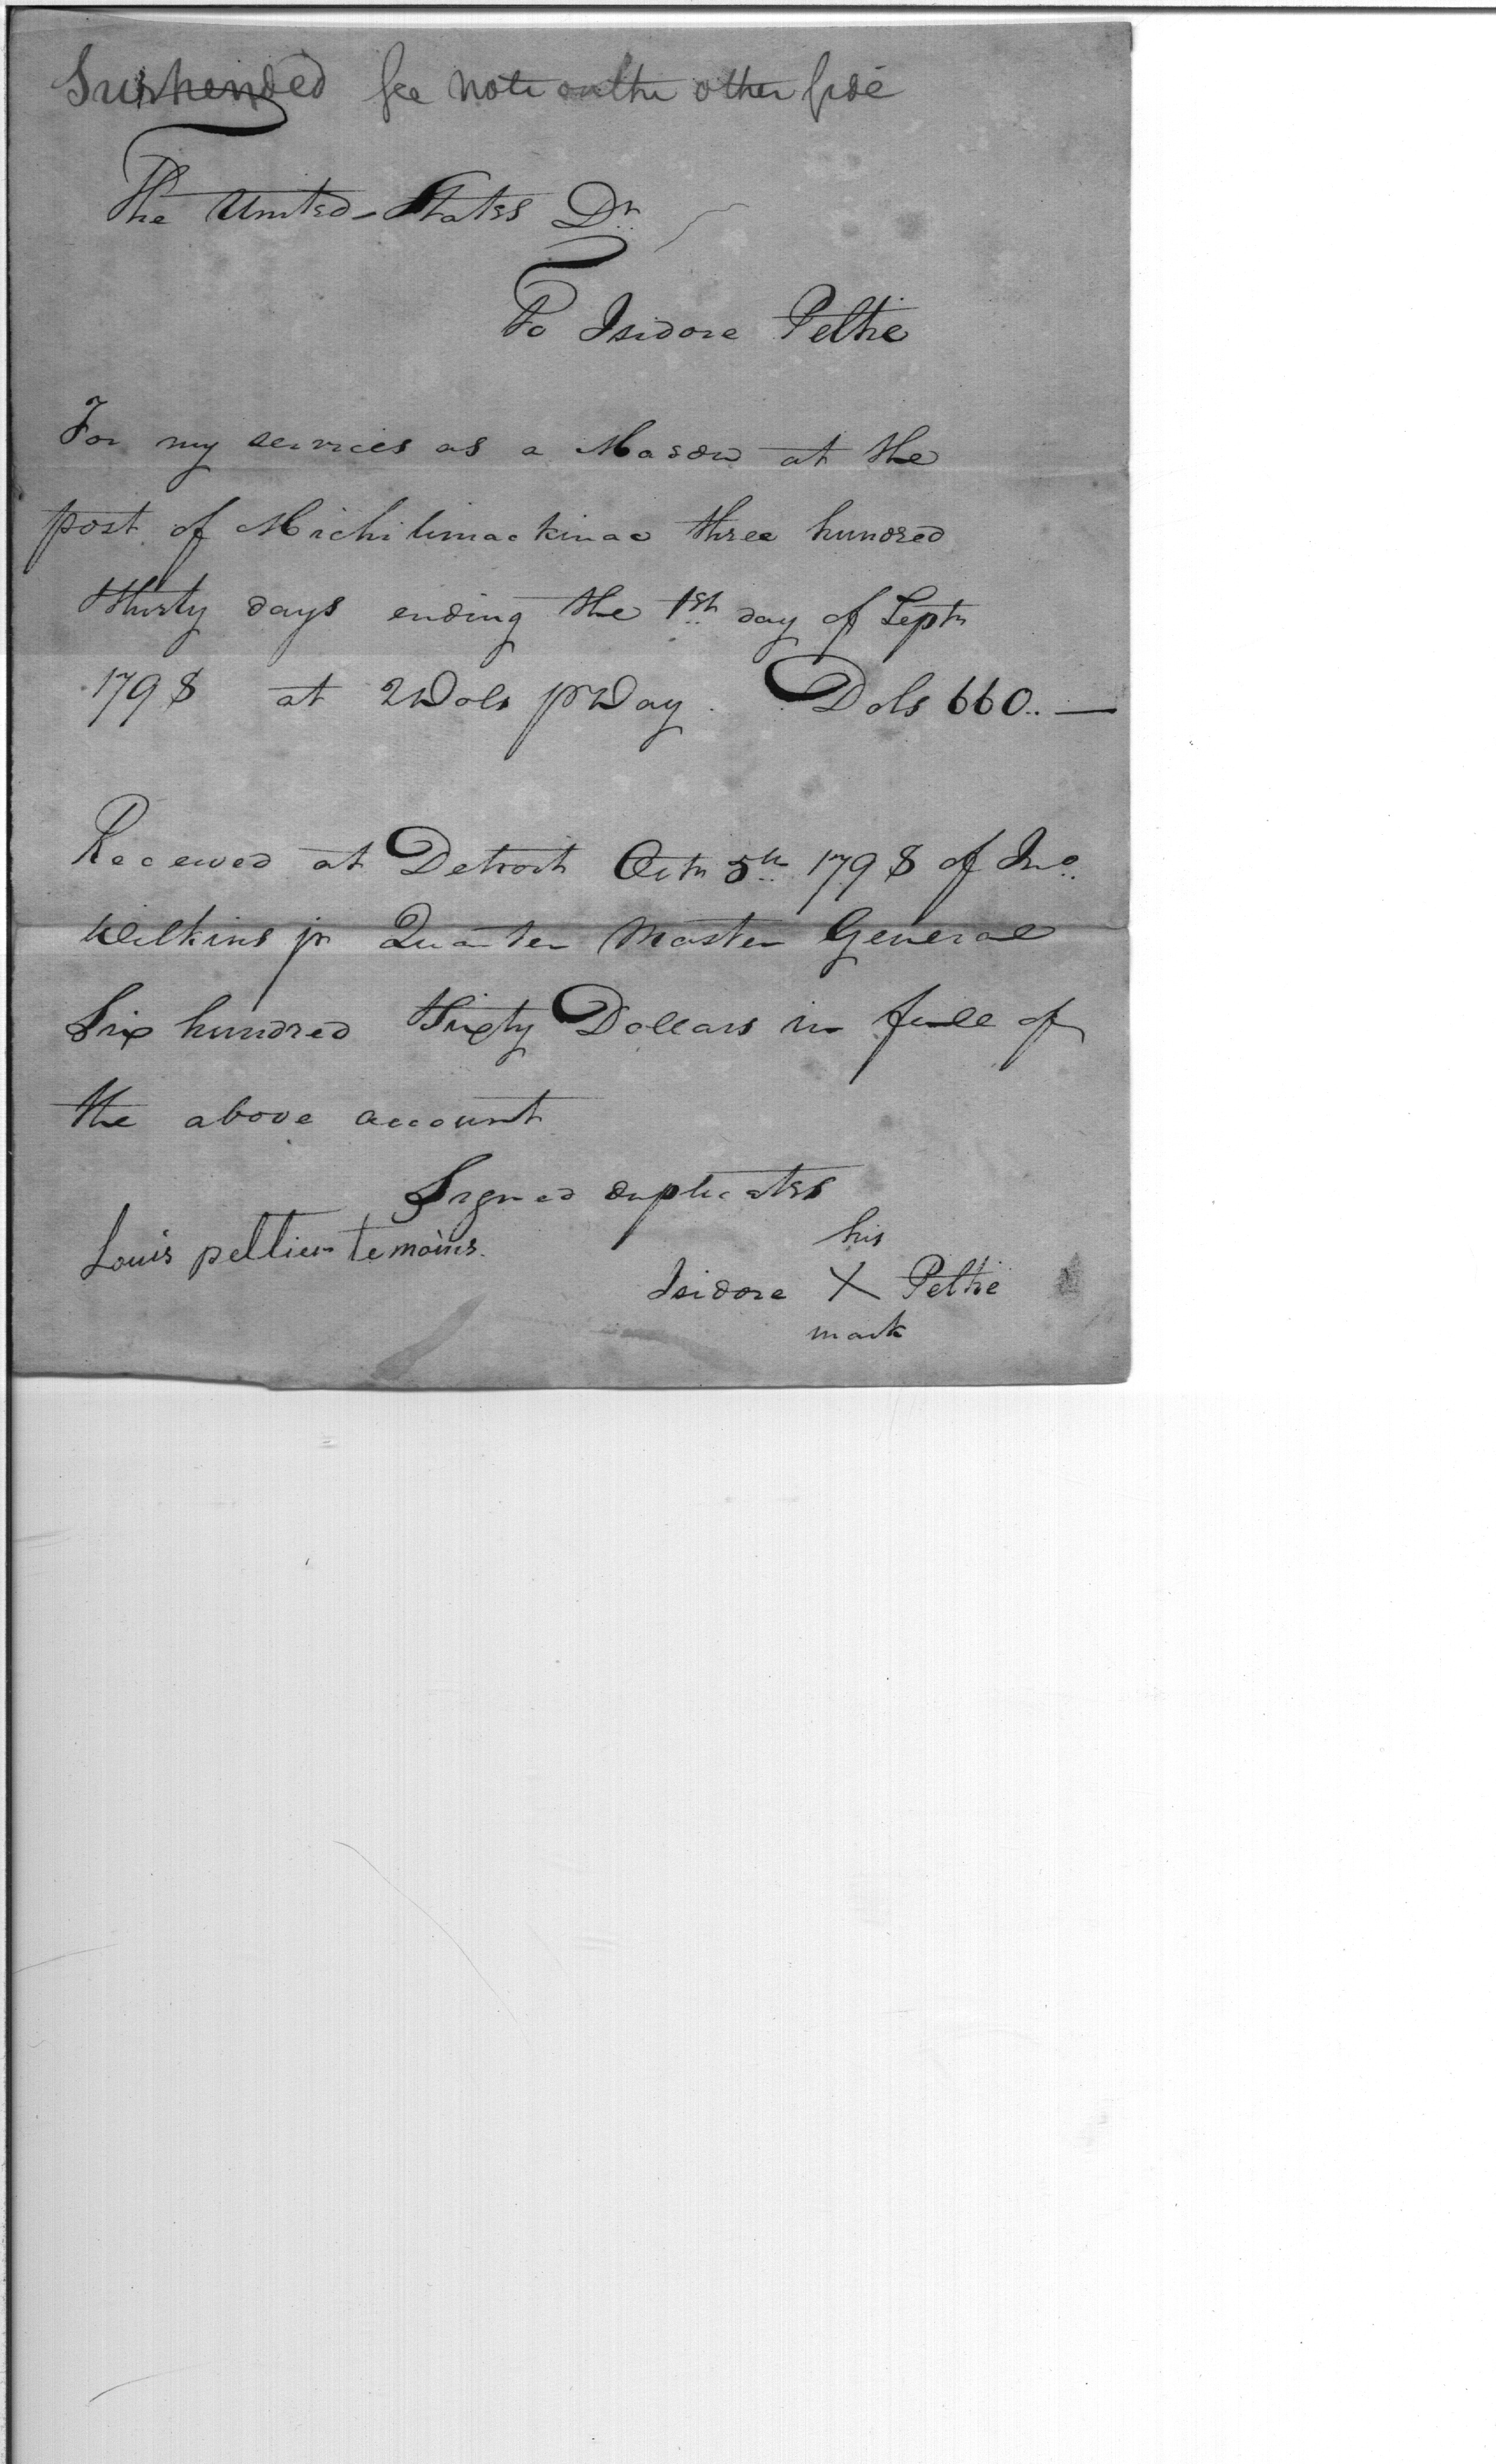 Suspended See Note on the other side
The United States Dr.
To Isidore Peltie
For my services as a Mason at the
post of Michilimackinac three hundred
thirty days ending the 1st day of Septr
1798 at 2 Dols pr Day. Dols 660..—
Received at Detroit Octr 5th 1798 of Jno.
Wilkins jr Quarter Master General
Six hundred Sixty Dollars in full of
the above account
Signed duplicates
Louis peltier temoins.
his
Isidore X Peltie
mark